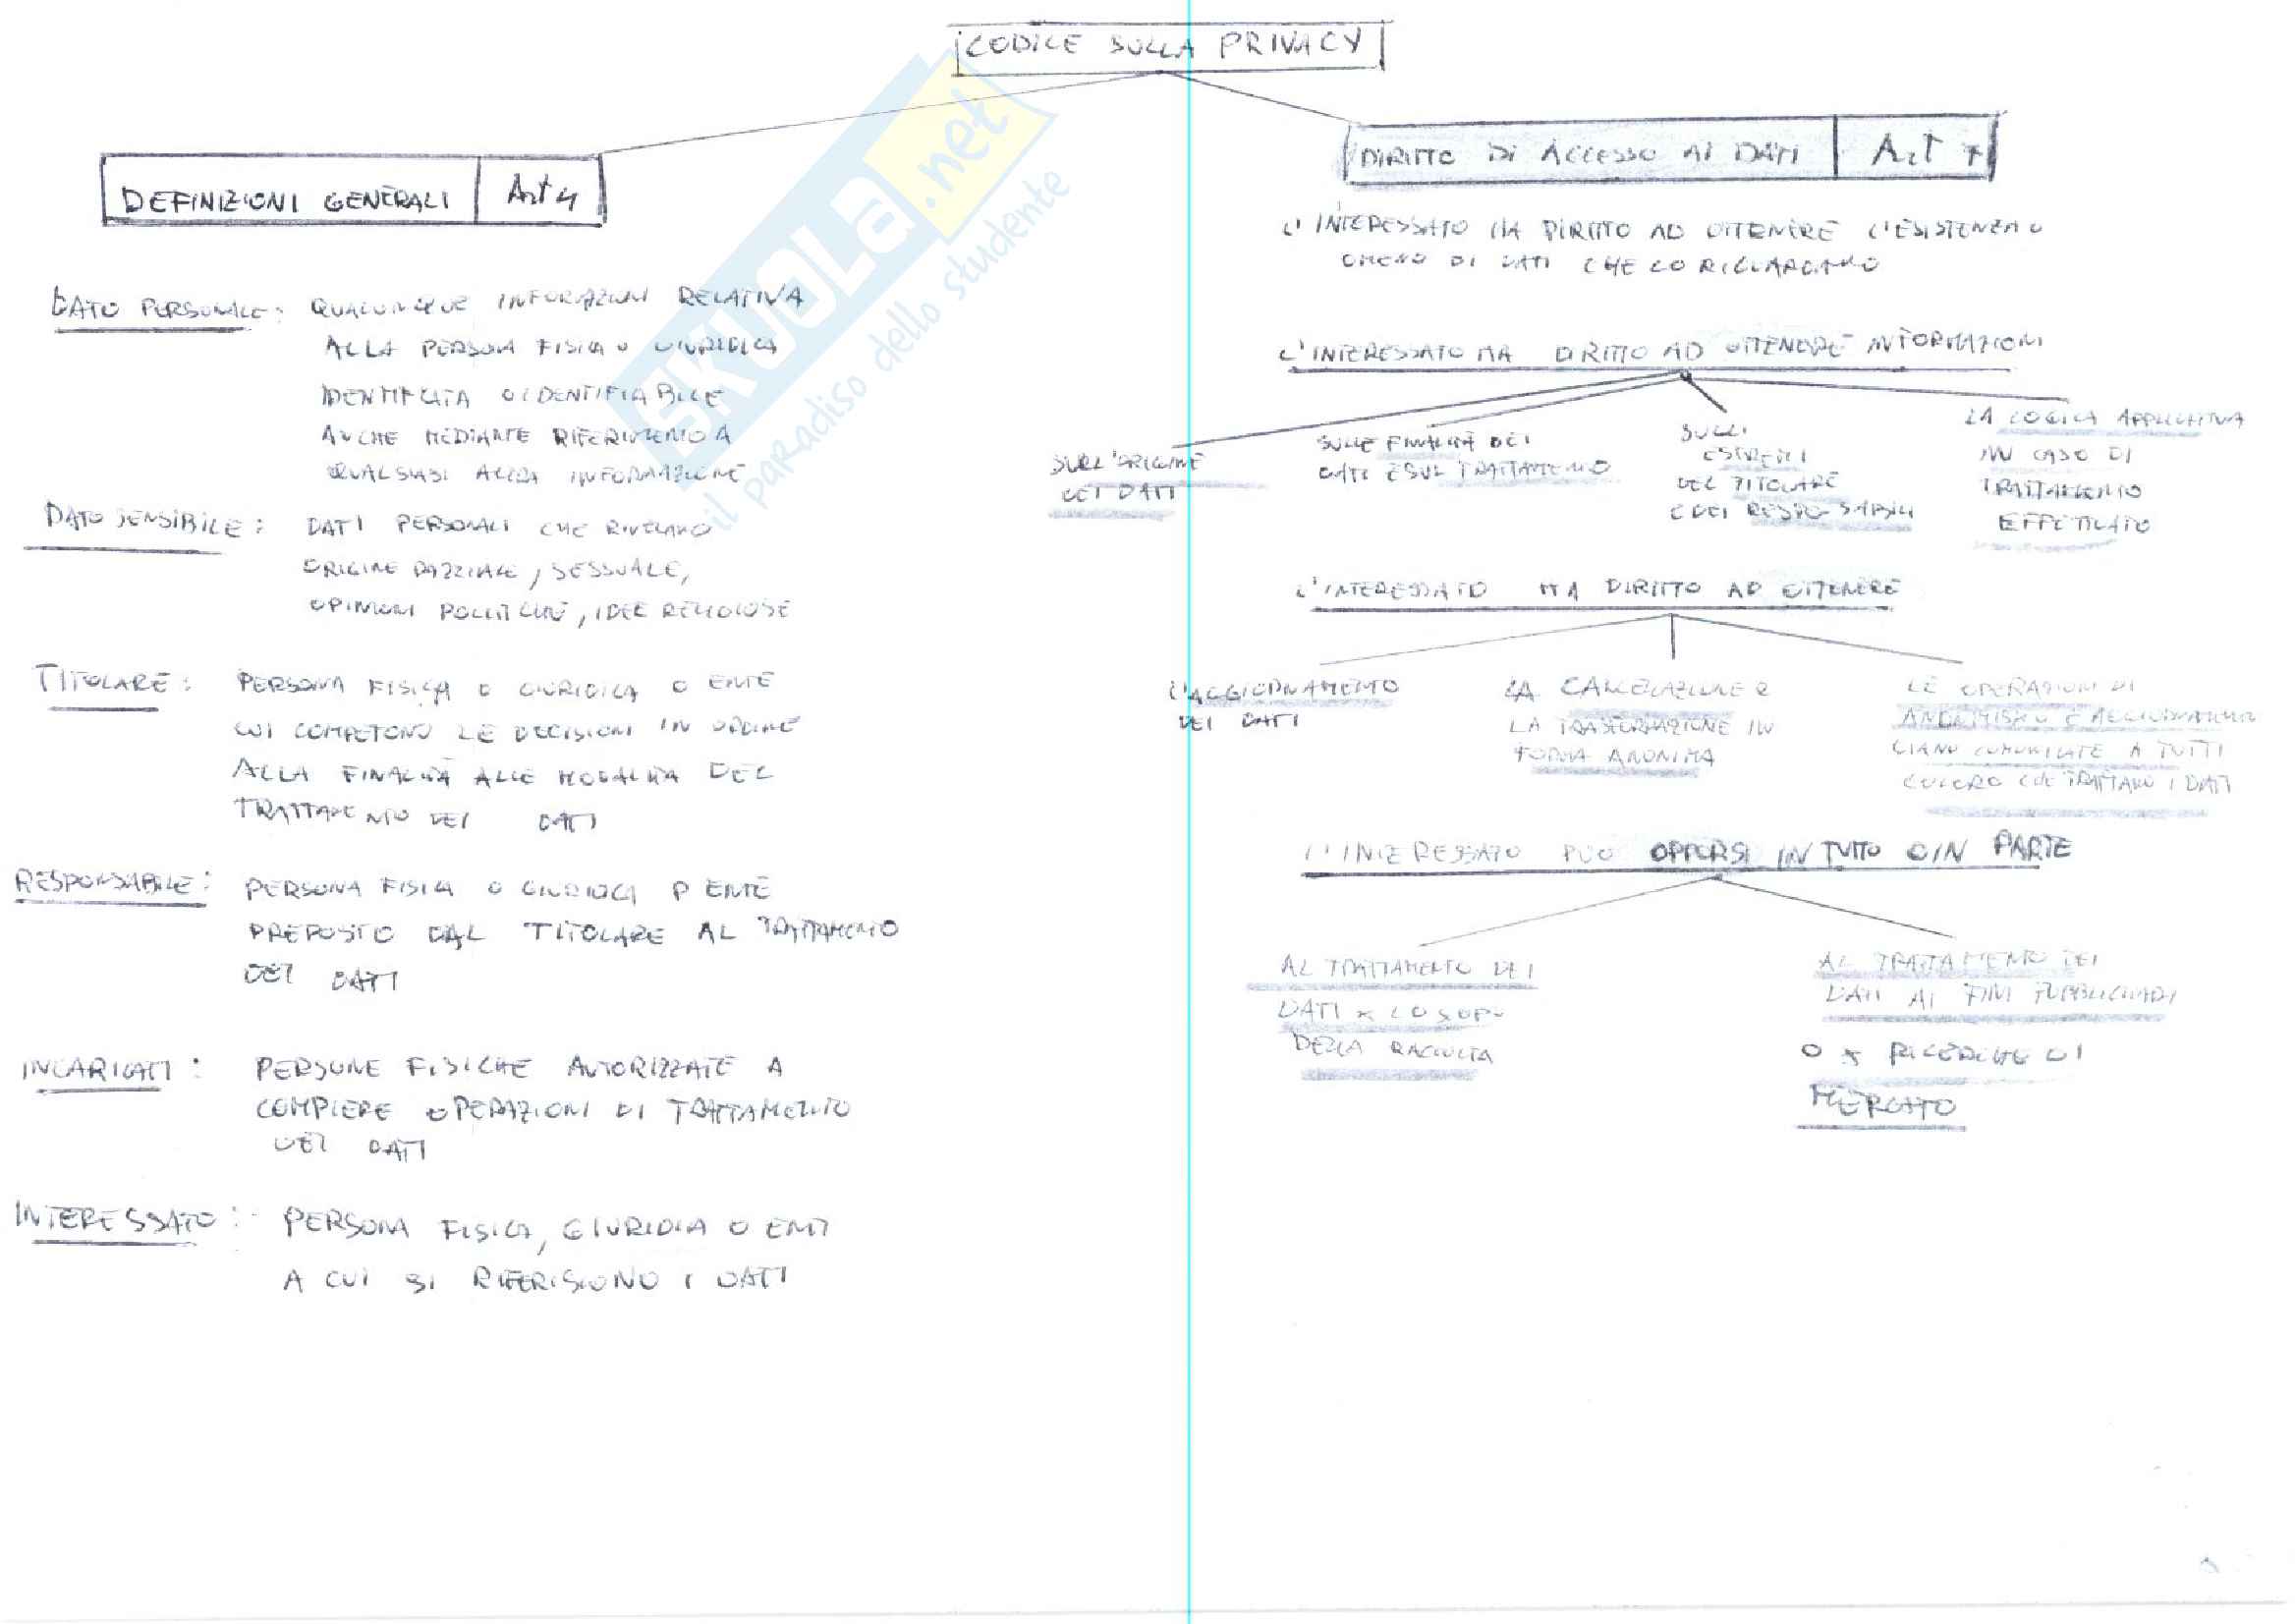 CODICE SULLA PRIVACY
DEFINIZIONI GENERALI Art 4
DATO PERSONALE: QUALUNQUE INFORAZIONI RELATIVA
ALLA PERSONA FISICA O GIURIDICA
IDENTIFICATA O IDENTIFIABILE
ANCHE MEDIANTE RIFERIMENTO A
QUALSIASI ALTRA INFORMAZIONE
DATO SENSIBILE: DATI PERSONALI CHE RIVELANO
ORIGINE RAZZIALE, SESSUALE,
OPINIONI POLITICHE, IDEE RELIGIOSE
TITOLARE: PERSONA FISICA O GIURIDICA O ENTE
CUI COMPETONO LE DECISIONI IN ORDINE
ALLA FINALITÀ ALLE MODALITÀ DEL
TRATTAMENTO DEI DATI
RESPONSABILE: PERSONA FISICA O GIURIDICA O ENTE
PREPOSTO DAL TITOLARE AL TRATTAMENTO
DEI DATI
INCARICATI: PERSONE FISICHE AUTORIZZATE A
COMPIERE OPERAZIONI DI TRATTAMENTO
DEI DATI
INTERESSATO: PERSONA FISICA, GIURIDICA O ENTI
A CUI SI RIFERISCONO I DATI
DIRITTO DI ACCESSO AI DATI Art 7
L'INTERESSATO HA DIRITTO AD OTTENERE L'ESISTENZA O
OMENO DI DATI CHE LO RIGUARDANO
L'INTERESSATO HA DIRITTO AD OTTENERE INFORMAZIONI
SULL'ORIGINE
DEI DATI
SULLE FINALITÀ DEI
DATI E SUL TRATTAMENTO
SUGLI
ESTREMI
DEL TITOLARE
E DEI RESPOSABILI
LA LOGICA APPLICATIVA
IN CASO DI
TRATTAMENTO
EFFETTUATO
L'INTERESSATO HA DIRITTO AD OTTENERE
L'AGGIORNAMENTO
DEI DATI
LA CANCELAZIONE E
LA TRASFORMAZIONE IN
FORMA ANONIMA
LE OPERAZIONI DI
E AGGIORNAMENTO
SIANO COMUNICATE A TUTTI
COLORO CHE TRATTANO I DATI
L'INTERESSATO PUO OPPORSI IN TUTTO O IN PARTE
AL TRATTAMENTO DEI
DATI X LO SOPO
DELLA RACCOLTA
AL TRATTAMENTO DEI
DATI AI FINI PUBBLICITARI
O X RICERCHE DI
MERCATO
SKUOLA.net
il paradiso dello studente